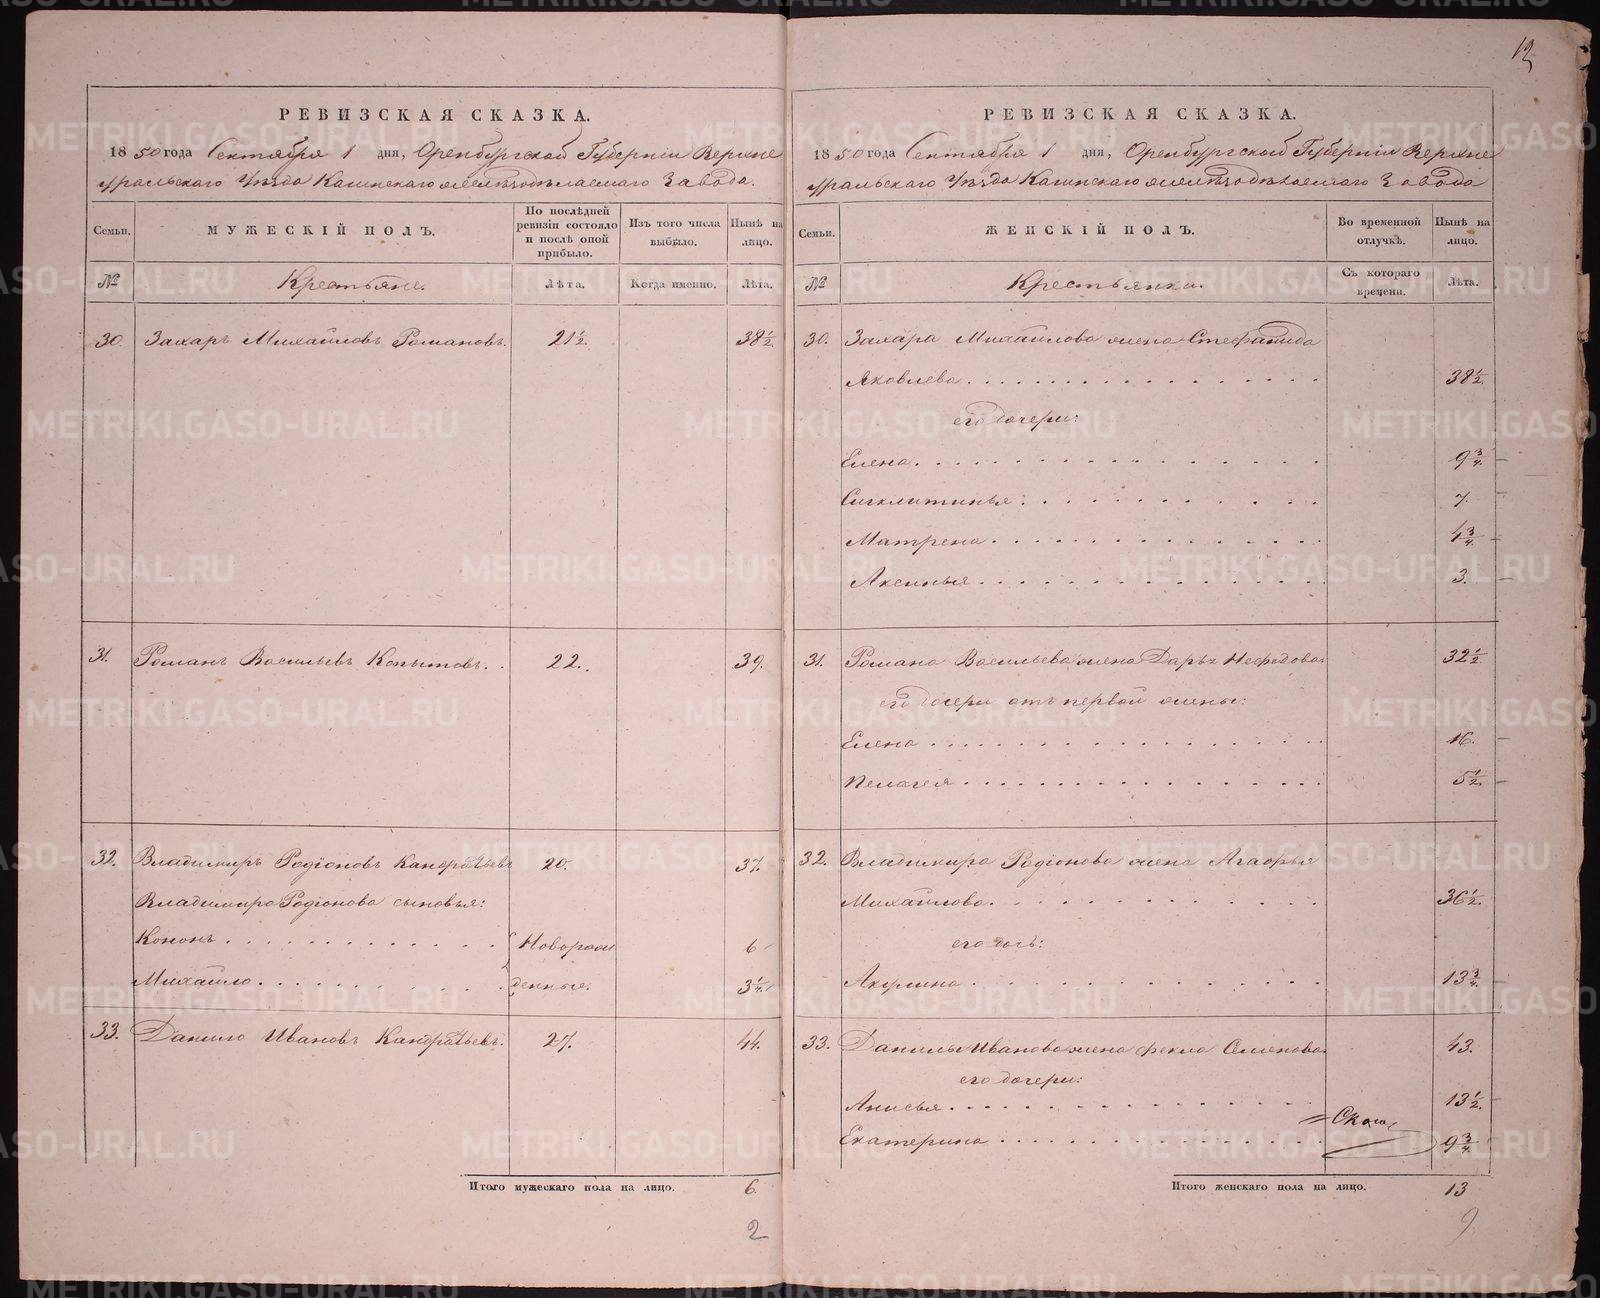 12
РЕВИЗСКАЯ СКАЗКА.
1850 года Сентября 1 дня, Оренбургской Губернiи Верхне
уральскаго Уѣзда Кагинскаго железодѣлаемаго Завода.
Семьи.
МУЖЕСКIЙ ПОЛЪ.
По послѣдней ревизiи состояло и послѣ оной прибыло.
Изъ того числа выбыло.
Нынѣ на лицо.
№
Крестьяне.
Лѣта.
Когда именно.
Лѣта.
30. Захаръ Михайловъ Романовъ. 21½. 38½
31. Романъ Васильевъ Копытовъ. 22. 39.
32. Владимиръ Родiоновъ Кандратьевъ 20. 37.
Владимира Родiонова сыновья:
Кононъ. Новорож 6
Михайло. денные. 3¼
33. Данило Ивановъ Кандратьевъ. 27. 44.
Итого мужескаго пола на лицо. 6
2
РЕВИЗСКАЯ СКАЗКА.
1850 года Сентября 1 дня, Оренбургской Губернiи Верхне
уральскаго Уѣзда Кагинскаго железодѣлаемаго Завода
Семьи.
ЖЕНСКIЙ ПОЛЪ.
Во временной отлучкѣ.
Нынѣ на лицо.
№
Крестьянки.
Съ котораго времени.
Лѣта.
30. Захара Михайлова жена Стефанида
Яковлева. 38½.
его дочери:
Елена. 9¾
Сигклитинья. 7.
Матрена. 4¾
Аксинья. 3.
31. Романа Васильева жена Дарья Нефедова 32½
его дочери отъ первой жены:
Елена 16.
Пелагея 5½
32. Владимира Родiонова жена Агафья
Михайлова. 36½.
его дочь:
Акулина 13¾
33. Данилы Иванова жена Фекла Семенова 43.
его дочери:
Анисья. 13½
Екатерина 9¾
Итого женскаго пола на лицо. 13
9
METRIKI.GASO-URAL.RU